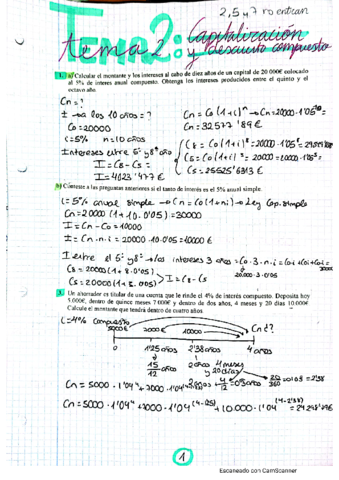 2,5 y 7 no entran
TEMA 2: Capitalización
tema 2: y descuento compuesto
1. a) Calcular el montante y los intereses al cabo de diez años de un capital de 20 000€ colocado
al 5% de interés anual compuesto. Obtenga los intereses producidos entre el quinto y el
octavo año.
Cn = ?
± → a los 10 años = ?
Co = 20000
i = 5% n = 10 años
± intereses entre 5º y 8º año
I = C8 - C5 =
I = 4023'477 €
Cn = Co(1+i)^n → Cn = 20000·1'05^10 =
Cn = 32577'89 €
C8 = Co(1+i)^8 = 20000·1'05^8 =
C5 = Co(1+i)^5 = 20000·1'05^5 =
C5 = 25525'6313 €
b) Conteste a las preguntas anteriores si el tanto de interés es el 5% anual simple.
i = 5% anual simple → Cn = Co(1+ni) → Ley Cap. Simple
Cn = 20000(1+10·0'05) = 30000
I = Cn - Co = 10000
± = Cn·n·i = 20000·10·0'05 = 10000 €
I entre el 5º y 8º → los intereses 3 años = Co·3·n·i =
C8 = 20000(1+8·0.05)
20.000·3·0.05
I = C8 - C5
3. Un ahorrador es titular de una cuenta que le rinde el 4% de interés compuesto. Deposita hoy
5.000€, dentro de quince meses 7.000€ y dentro de dos años, 4 meses y 20 días 10.000€
Calcule el montante que tendrá dentro de cuatro años
i = 4% compuesto
5000 €
10000
Cn?
0
1'25 años
2'38 años
4 años
15/12 años
2 años 4 meses y 20 días
Cn = 5000·1'04^4 +
Cn = 5000·1'04^4 + 7000·1'04^(4-1'25) + 10.000·1'04^(4-2'38) =
1
Escaneado con CamScanner